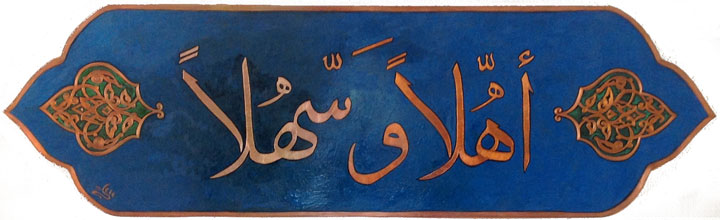 أهّلاً وَ سّهلاً